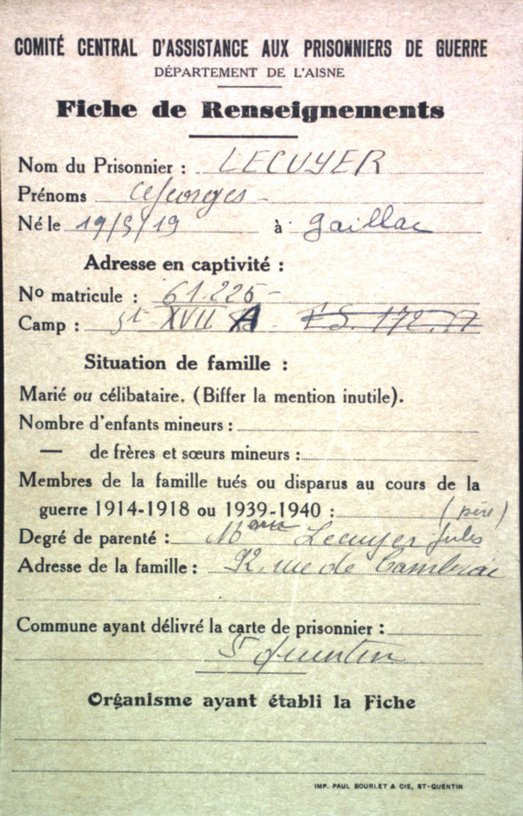 COMITÉ CENTRAL D'ASSISTANCE AUX PRISONNIERS DE GUERRE
DÉPARTEMENT DE L'AISNE
Fiche de Renseignements
Nom du Prisonnier : LECUYER
Prénoms Georges
Né le 19/5/19 à gaillac
Adresse en captivité :
No matricule : 61.225
Camp : st XVII A
Situation de famille :
Marié ou célibataire. (Biffer la mention inutile).
Nombre d'enfants mineurs :
— de frères et sœurs mineurs :
Membres de la famille tués ou disparus au cours de la
guerre 1914-1918 ou 1939-1940 : (père)
Degré de parenté : Lecuyer Jules
Adresse de la famille : 92, rue de Cambrai
Commune ayant délivré la carte de prisonnier :
St Quentin
Organisme ayant établi la Fiche
IMP. PAUL BOURLET & CIE, ST-QUENTIN